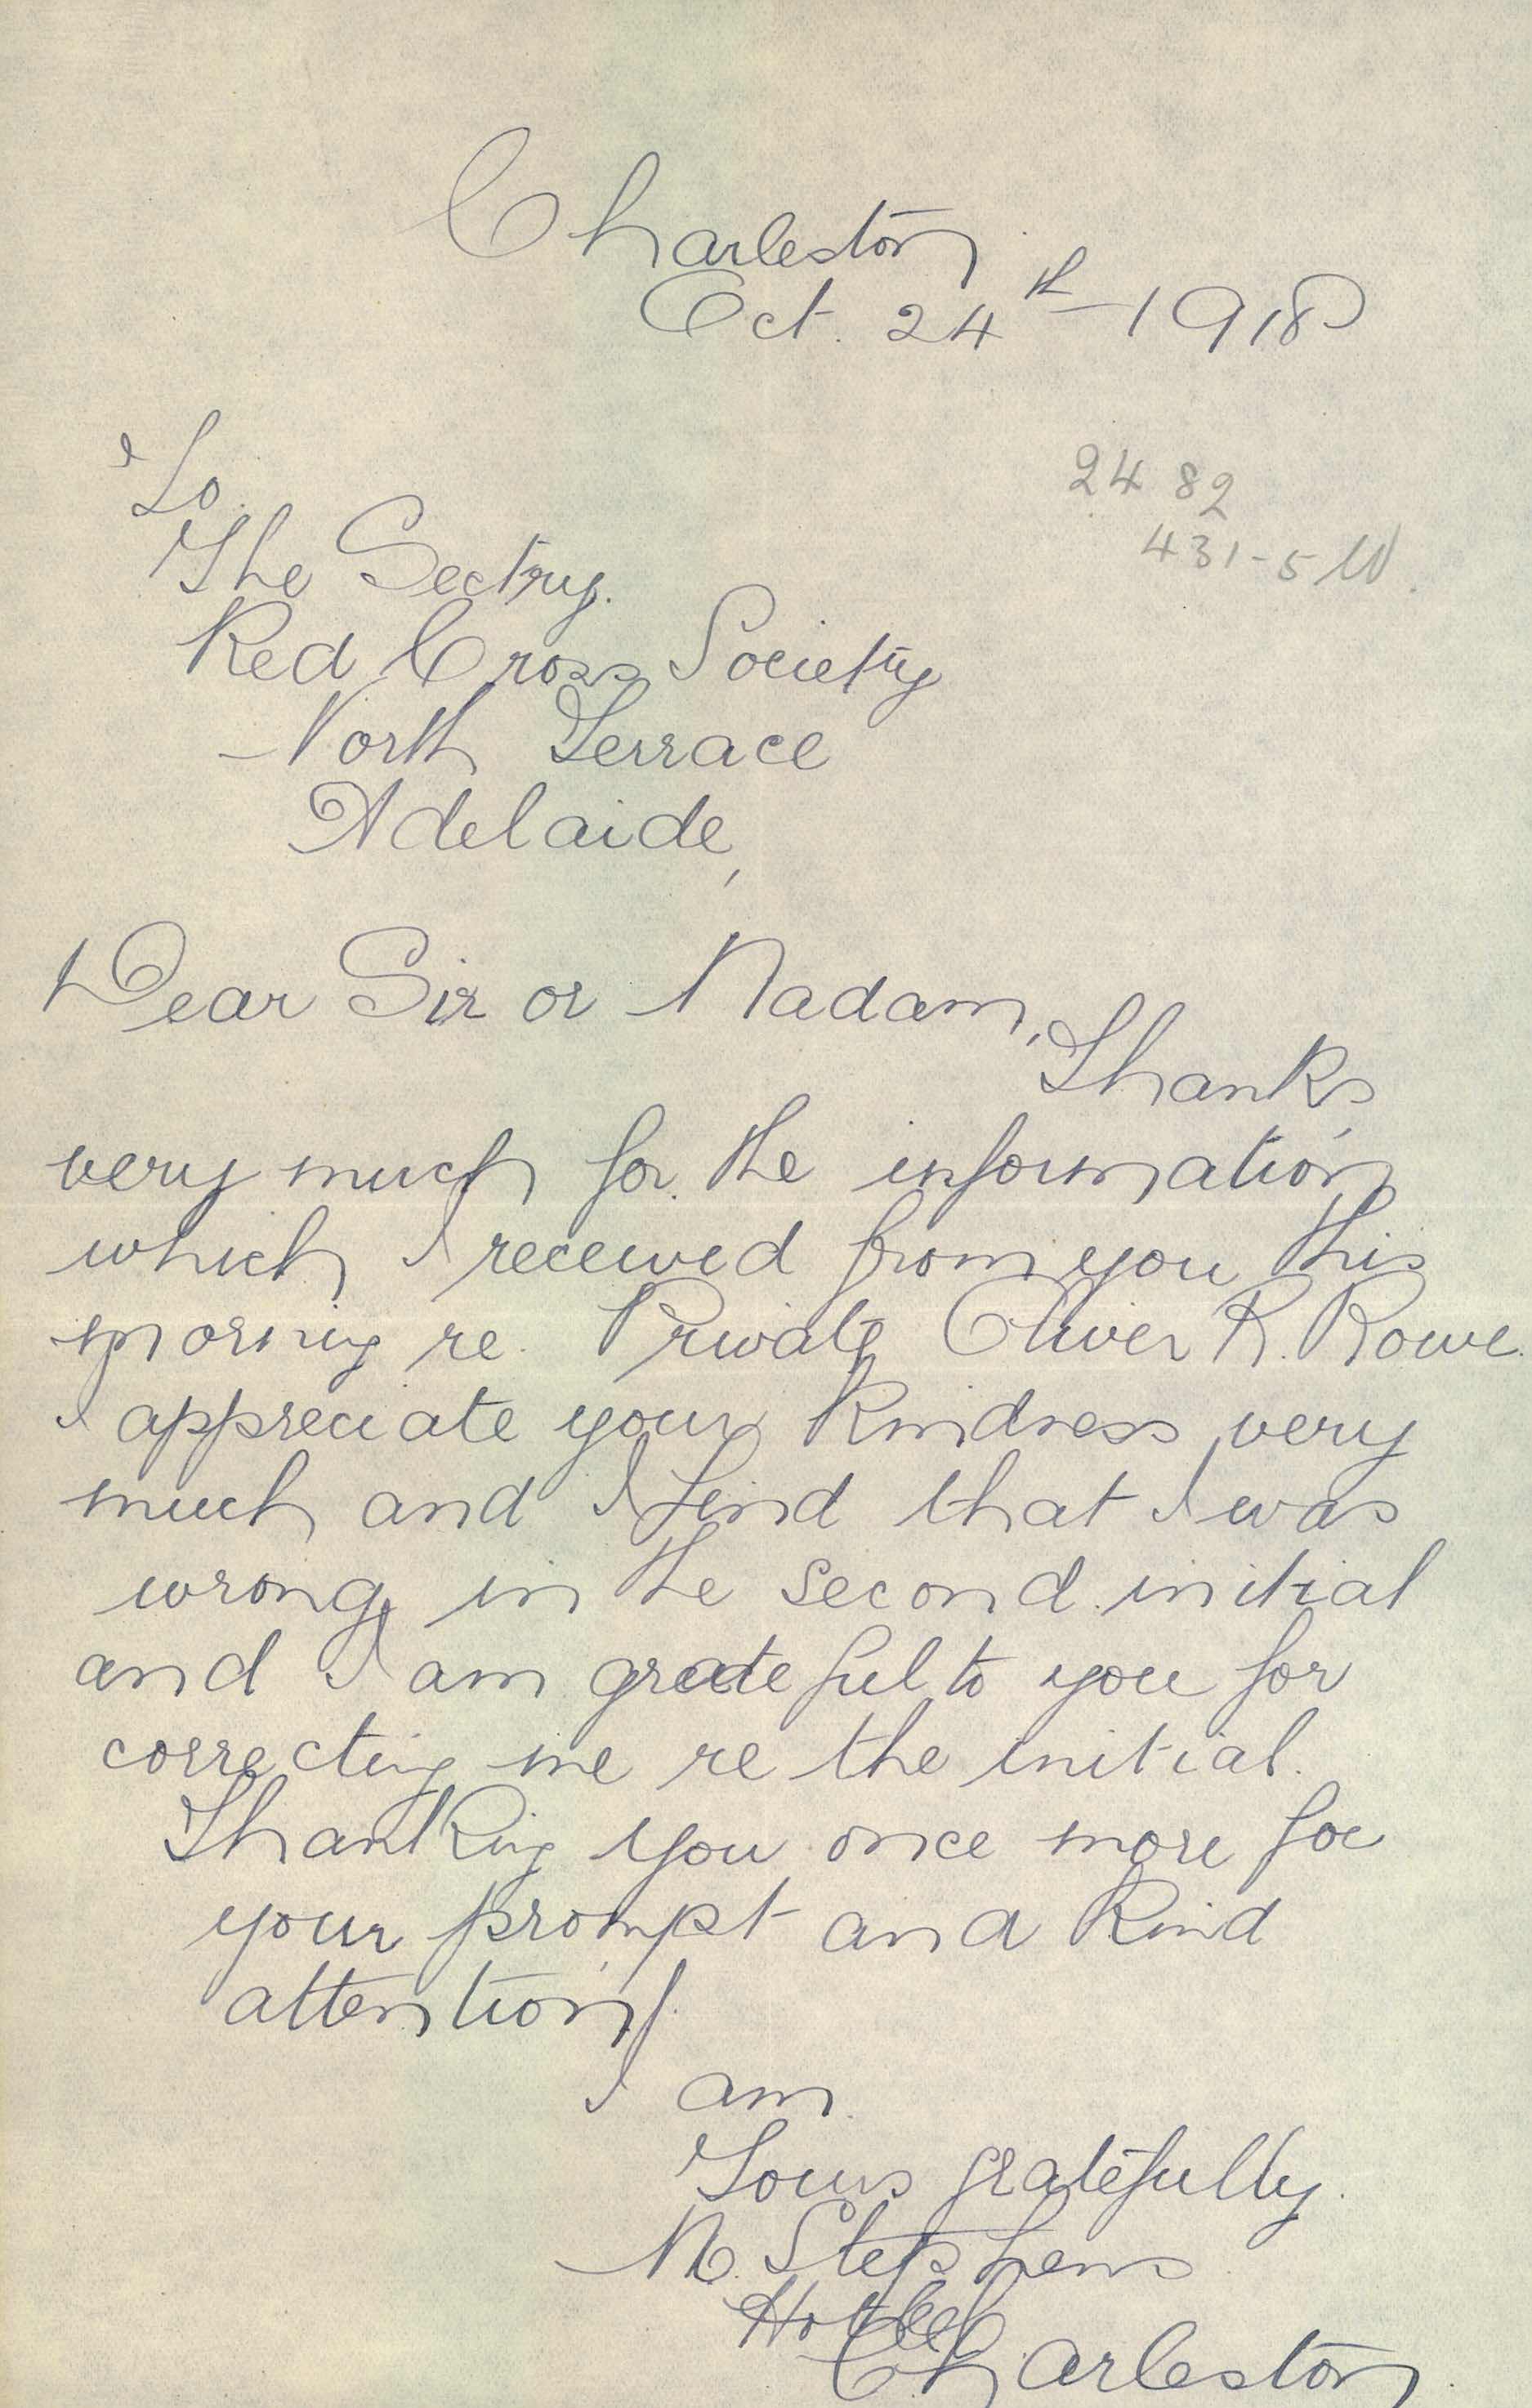 Charleston
Oct. 24th 1918
To
2482
The Sectry.
431-5 W.
Red Cross Society
North Terrace
Adelaide,
Dear Sir or Madam,
Thanks
very much for the information
which I received from you this
morning re. Private Oliver R. Rowe.
I appreciate your kindness very
much and I find that I was
wrong in the second initial
and I am grateful to you for
correcting me re the initial.
Thanking you once more for
your prompt and kind
attention.
I am
Yours gratefully.
M. Stephens
Hotel
Charleston